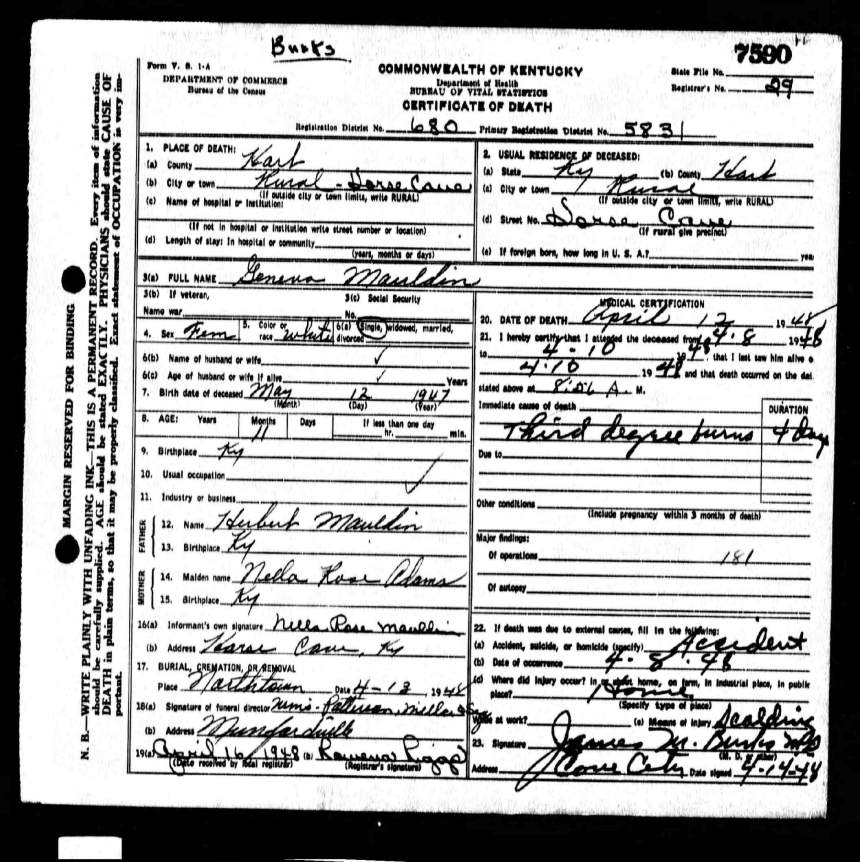 Burks
7590
Form V. S. 1-A
DEPARTMENT OF COMMERCE
Bureau of the Census
COMMONWEALTH OF KENTUCKY
Department of Health
BUREAU OF VITAL STATISTICS
CERTIFICATE OF DEATH
State File No.
Registrar's No. 29
Registration District No. 680 Primary Registration District No. 5831
MARGIN RESERVED FOR BINDING
N. B.—WRITE PLAINLY WITH UNFADING INK—THIS IS A PERMANENT RECORD. Every item of information
should be carefully supplied. AGE should be stated EXACTLY. PHYSICIANS should state CAUSE OF
DEATH in plain terms, so that it may be properly classified. Exact statement of OCCUPATION is very im-
portant.
1. PLACE OF DEATH:
(a) County Hart
(b) City or town Rural - Horse Cave
(If outside city or town limits, write RURAL)
(c) Name of hospital or institution:
(If not in hospital or institution write street number or location)
(d) Length of stay: In hospital or community
(years, months or days)
2. USUAL RESIDENCE OF DECEASED:
(a) State Ky (b) County Hart
(c) City or town Rural
(If outside city or town limits, write RURAL)
(d) Street No. Horse Cave
(If rural give precinct)
(e) If foreign born, how long in U. S. A.? years
3(a) FULL NAME Geneva Mauldin
3(b) If veteran,
Name war
3(c) Social Security
No.
4. Sex Fem 5. Color or race white 6(a) Single, widowed, married, divorced
6(b) Name of husband or wife ✓
6(c) Age of husband or wife if alive ✓ Years
7. Birth date of deceased May 12 1947
(Month) (Day) (Year)
8. AGE: Years Months Days If less than one day
11 hr. min.
9. Birthplace Ky
10. Usual occupation ✓
11. Industry or business
FATHER
12. Name Herbert Mauldin
13. Birthplace Ky
MOTHER
14. Maiden name Nella Rose Adams
15. Birthplace Ky
16(a) Informant's own signature Nella Rose Mauldin
(b) Address Horse Cave, Ky
17. BURIAL, CREMATION, OR REMOVAL
Place Northtown Date 4-13 1948
18(a) Signature of funeral director
(b) Address Munfordville
19(a) April 16, 1948 (b) Rowena Riggs
(Date received by local registrar) (Registrar's signature)
MEDICAL CERTIFICATION
20. DATE OF DEATH April 12 1948
21. I hereby certify that I attended the deceased from 4-8 1948
to 4-10 1948 that I last saw him alive o
4-10 1948 and that death occurred on the dat
stated above at 8:06 A. M.
Immediate cause of death DURATION
Third degree burns 4 days
Due to
Other conditions
(Include pregnancy within 3 months of death)
Major findings:
Of operations 181
Of autopsy
22. If death was due to external causes, fill in the following:
(a) Accident, suicide, or homicide (specify) Accident
(b) Date of occurrence 4-8-48
(c) Where did injury occur? In or about home, on farm, in industrial place, in public
place? Home
(Specify type of place)
While at work? (e) Means of injury Scalding
23. Signature James M. Burks MD
(M. D. or other)
Address Cave City Date signed 4-14-48